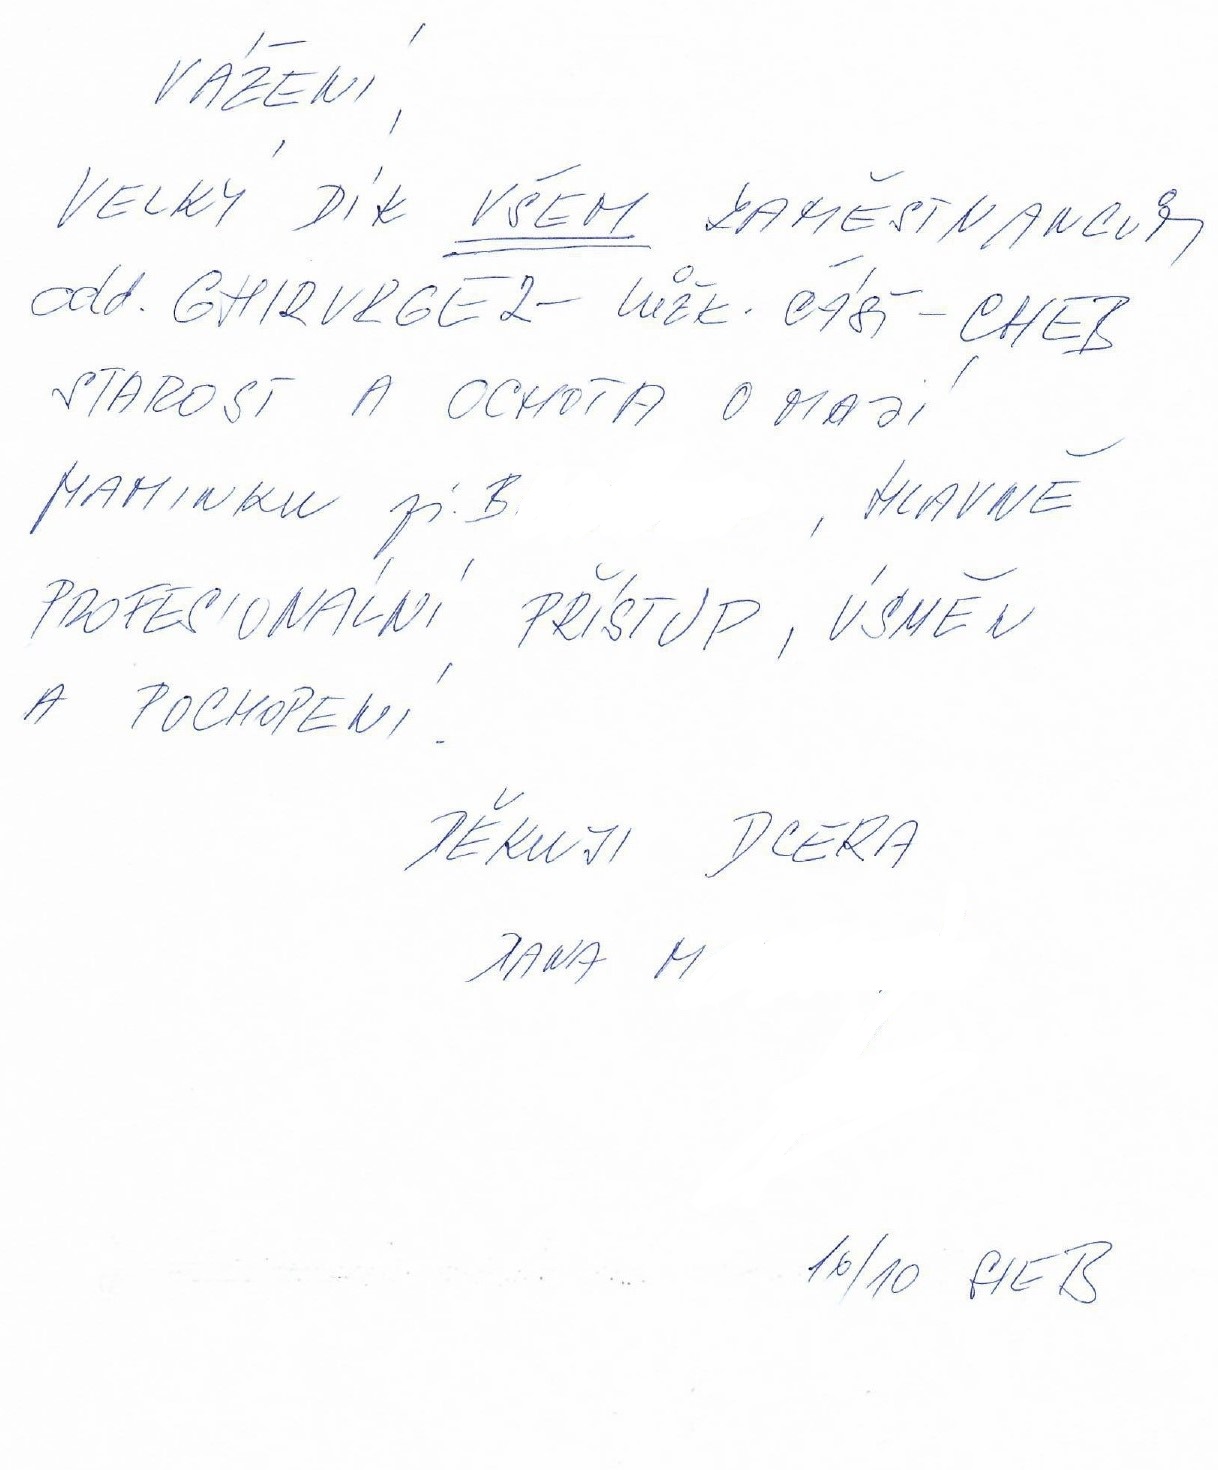 VÁŽENÍ,
VELKÝ DÍK VŠEM ZAMĚSTNANCŮM
odd. CHIRURGE 2 - lůžk. ČÁST - CHEB
STAROST A OCHOTA O MAJÍ
MAMINKU pí. B. , HLAVNĚ
PROFESIONÁLNÍ PŘÍSTUP, ÚSMĚV
A POCHOPENÍ.
DĚKUJI DCERA
JANA M
16/10 CHEB